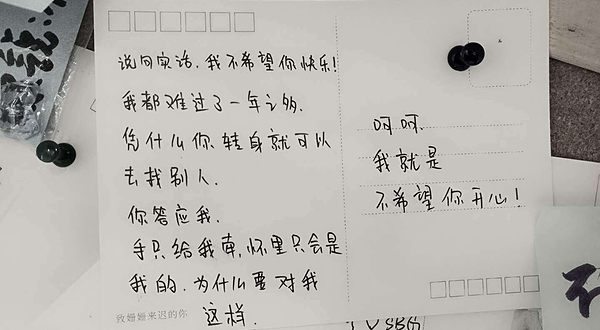 说句实话，我不希望你快乐！
我都难过了一年之多．
凭什么你转身就可以
去找别人．
你答应我．
手只给我牵，怀里只会是
我的．为什么要对我
这样．
致姗姗来迟的你
呵呵．
我就是
不希望你开心！